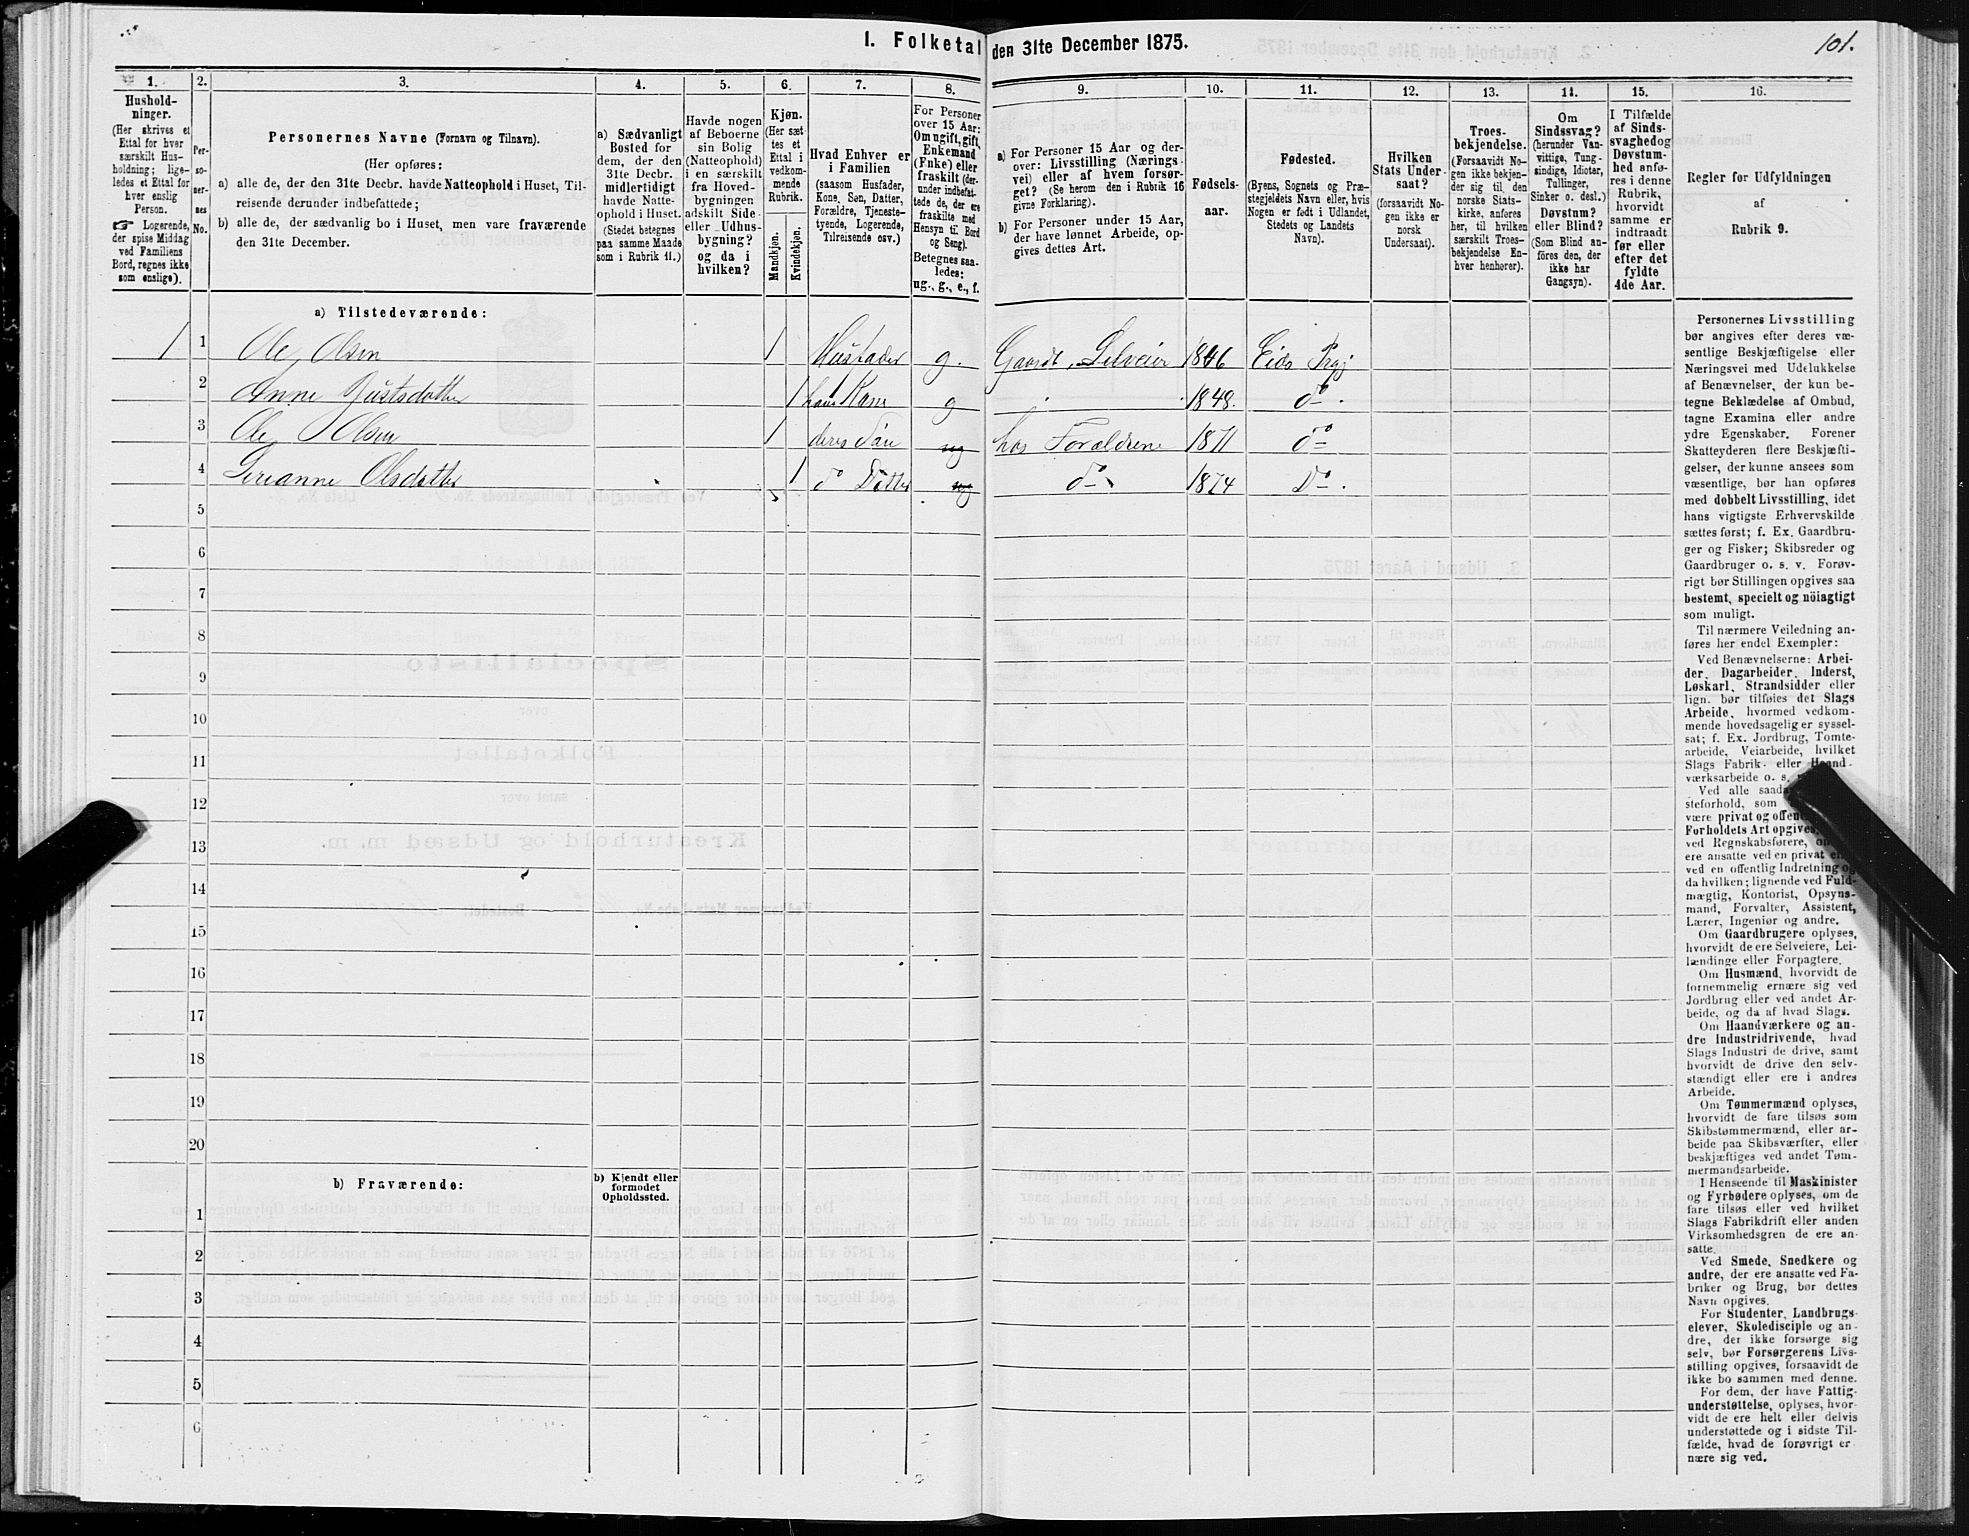 1. Folketal den 31te December 1875.
101.
1.
2.
3.
4.
5.
6.
7.
8.
9.
10.
11.
12.
13.
14.
15.
16.
Hushold-
ninger.
(Her skrives et
Ettal for hver
særskilt Hus-
holdning; lige-
ledes et Ettal for
hver enslig
Person.
☞ Logerende,
der spise Middag
ved Familiens
Bord, regnes ikke
som enslige).
Per-
so-
ner-
nes
No.
Personernes Navne (Fornavn og Tilnavn).
(Her opføres:
a) alle de, der den 31te Decbr. havde Natteophold i Huset, Til-
reisende derunder indbefattede;
b) alle de, der sædvanlig bo i Huset, men vare fraværende
den 31te December.
a) Sædvanligt
Bosted for
dem, der den
31te Decbr.
midlertidigt
havde Natte-
ophold i Huset.
(Stedet betegnes
paa samme Maade
som i Rubrik 11.)
Havde nogen
af Beboerne
sin Bolig
(Natteophold)
i en særskilt
fra Hoved-
bygningen
adskilt Side-
eller Udhus-
bygning?
og da i
hvilken?
Kjøn.
(Her sæt-
tes et
Ettal i
vedkom-
mende
Rubrik.
Mandkjøn.
Kvindekjøn.
Hvad Enhver er
i Familien
(saasom Husfader,
Kone, Søn, Datter,
Forældre, Tjeneste-
tyende, Logerende,
Tilreisende osv.)
For Personer
over 15 Aar:
Om ugift, gift,
Enkemand
(Enke) eller
fraskilt (der-
under indbefat-
tede de, der ere
fraskilte med
Hensyn til Bord
og Seng).
Betegnes saa-
ledes:
ug., g., e., f.
a) For Personer 15 Aar og der-
over: Livsstilling (Nærings-
vei) eller af hvem forsør-
get? (Se herom den i Rubrik 16
givne Forklaring).
b) For Personer under 15 Aar,
der have lønnet Arbeide, op-
gives dettes Art.
Fødsels-
aar.
Fødested.
(Byens, Sognets og Præ-
stegjeldets Navn eller, hvis
Nogen er født i Udlandet,
Stedets og Landets
Navn).
Hvilken
Stats Under-
saat?
(forsaavidt No-
gen ikke er
norsk
Undersaat).
Troes-
bekjendelse.
(Forsaavidt No-
gen ikke bekjen-
der sig til den
norske Stats-
kirke, anføres
her, til hvilken
særskilt Troes-
bekjendelse En-
hver henhører).
Om
Sindssvag?
(herunder Van-
vittige, Tung-
sindige, Idioter,
Tullinger,
Sinker o. desl.)
Døvstum?
eller Blind?
(Som Blind an-
føres den, der
ikke har
Gangsyn).
I Tilfælde
af Sinds-
svaghed og
Døvstum-
hed anfø-
res i denne
Rubrik,
hvorvidt
samme er
indtraadt
før eller
efter det
fyldte
4de Aar.
Regler for Udfyldningen
af
Rubrik 9.
a) Tilstedeværende:
1 1 Ole Olsen 1 Husfader g. Gaardb, Selveier 1846 Eids Prgj
2 Anne Justsdatter 1 hans Kone g 1848. do.
3 Ole Olsen 1 deres Søn ug hos Forældrene 1871 do
4 Olsdatter 1 do Datter ug do 1874 Do.
5
6
7
8
9
10
11
12
13
14
15
16
17
18
19
20
b) Fraværende:
b) Kjendt eller
formodet
Opholdssted.
1
2
3
4
5
6
Personernes Livsstilling
bør angives efter deres væ-
sentlige Beskjæftigelse eller
Næringsvei med Udelukkelse
af Benævnelser, der kun be-
tegne Beklædelse af Ombud,
tagne Examina eller andre
ydre Egenskaber. Forener
Skatteyderen flere Beskjæfti-
gelser, der kunne ansees som
væsentlige, bør han opføres
med dobbelt Livsstilling, idet
hans vigtigste Erhvervskilde
sættes først; f. Ex. Gaardbru-
ger og Fisker; Skibsreder og
Gaardbruger o. s. v. Forøv-
rigt bør Stillingen opgives saa
bestemt, specielt og nöiagtigt
som muligt.
Til nærmere Veiledning an-
føres her endel Exempler:
Ved Benævnelserne: Arbei-
der, Dagarbeider, Inderst,
Løskarl, Strandsidder eller
lign. bør tilføies det Slags
Arbeide, hvormed vedkom-
mende hovedsagelig er syssel-
sat; f. Ex. Jordbrug, Tomte-
arbeide, Veiarbeide, hvilket
Slags Fabrik- eller Haand-
værksarbeide o. s.
Ved alle
steforhold, som
være privat og
Forholdets Art
ved Regnskabsførere,
ere ansatte ved en privat
ved en offentlig Indretning og
da hvilken; lignende ved Fuld-
mægtig, Kontorist, Opsyns-
mand, Forvalter, Assistent,
Lærer, Ingeniør og andre.
Om Gaardbrugere oplyses,
hvorvidt de ere Selveiere, Lei-
lændinge eller Forpagtere.
Om Husmænd, hvorvidt de
fornemmelig ernære sig ved
Jordbrug eller ved andet Ar-
beide, og da af hvad Slags.
Om Haandværkere og an-
dre Industridrivende, hvad
Slags Industri de drive, samt
hvorvidt de drive den selv-
stændigt eller ere i andres
Arbeide.
Om Tømmermænd oplyses,
hvorvidt de fare tilsøs som
Skibstømmermænd, eller ar-
beide paa Skibsværfter, eller
beskjæftiges ved andet Tøm-
mermandsarbeide.
I Henseende til Maskinister
og Fyrbødere oplyses, om de
fare tilsøs eller ved hvilket
Slags Fabrikdrift eller anden
Virksomhedsgren de ere an-
satte.
Ved Smede, Snedkere og
andre, der ere ansatte ved Fa-
briker og Brug, bør dettes
Navn opgives.
For Studenter, Landbrugs-
elever, Skoledisciple og an-
dre, der ikke forsørge sig
selv, bør Forsørgerens Livs-
stilling opgives, forsaavidt de
ikke bo sammen med denne.
For dem, der have Fattig-
understøttelse, oplyses, hvor-
vidt de ere helt eller delvis
understøttede og i sidste Til-
fælde, hvad de forøvrigt er-
nære sig ved.